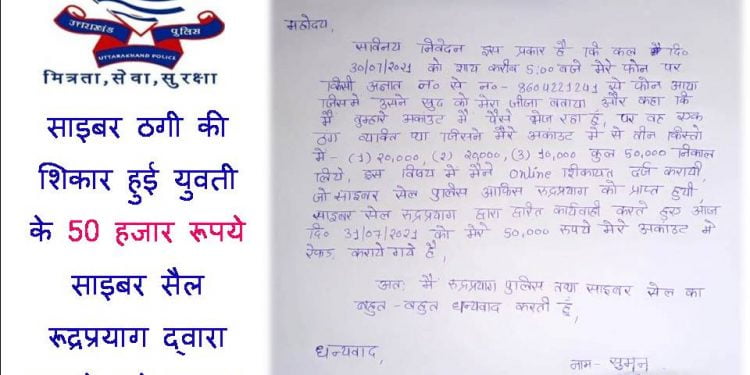 उत्तराखण्ड पुलिस
UTTARAKHAND POLICE
मित्रता,सेवा,सुरक्षा
साइबर ठगी की
शिकार हुई युवती
के 50 हजार रूपये
साइबर सैल
रूद्रप्रयाग द्वारा
महोदय,
सविनय निवेदन इस प्रकार है कि कल दि०
30/07/2021 को शाय करीब 5:00 बजे मेरे फोन पर
किसी अज्ञात न० से न०- 8604221241 से फोन आया
जिसमे उसने खुद को मेरा जीजा बताया और कहा कि
मैं तुम्हारे अकाउंट मे पैसे भेज रहा हूं, पर वह एक
ठग व्यक्ति था जिसने मेरे अकाउंट मे से तीन किस्तो
मे - (1) 20,000, (2) 20,000, (3) 10,000 कुल 50,000 निकाल
लिये, इस विषय मे मैने Online शिकायत दर्ज करायी,
जो साइबर सेल पुलिस आफिस रूद्रप्रयाग को प्राप्त हुयी,
साइबर सेल रूद्रप्रयाग द्वारा त्वरित कार्यवाही करते हुए आज
दि० 31/07/2021 को मेरे 50,000 रुपये मेरे अकाउंट मे
कराये गये है,
अतः मै रूद्रप्रयाग पुलिस तथा साइबर सेल का
बहुत-बहुत धन्यवाद करती हूं,
धन्यवाद,
नाम- सुमन